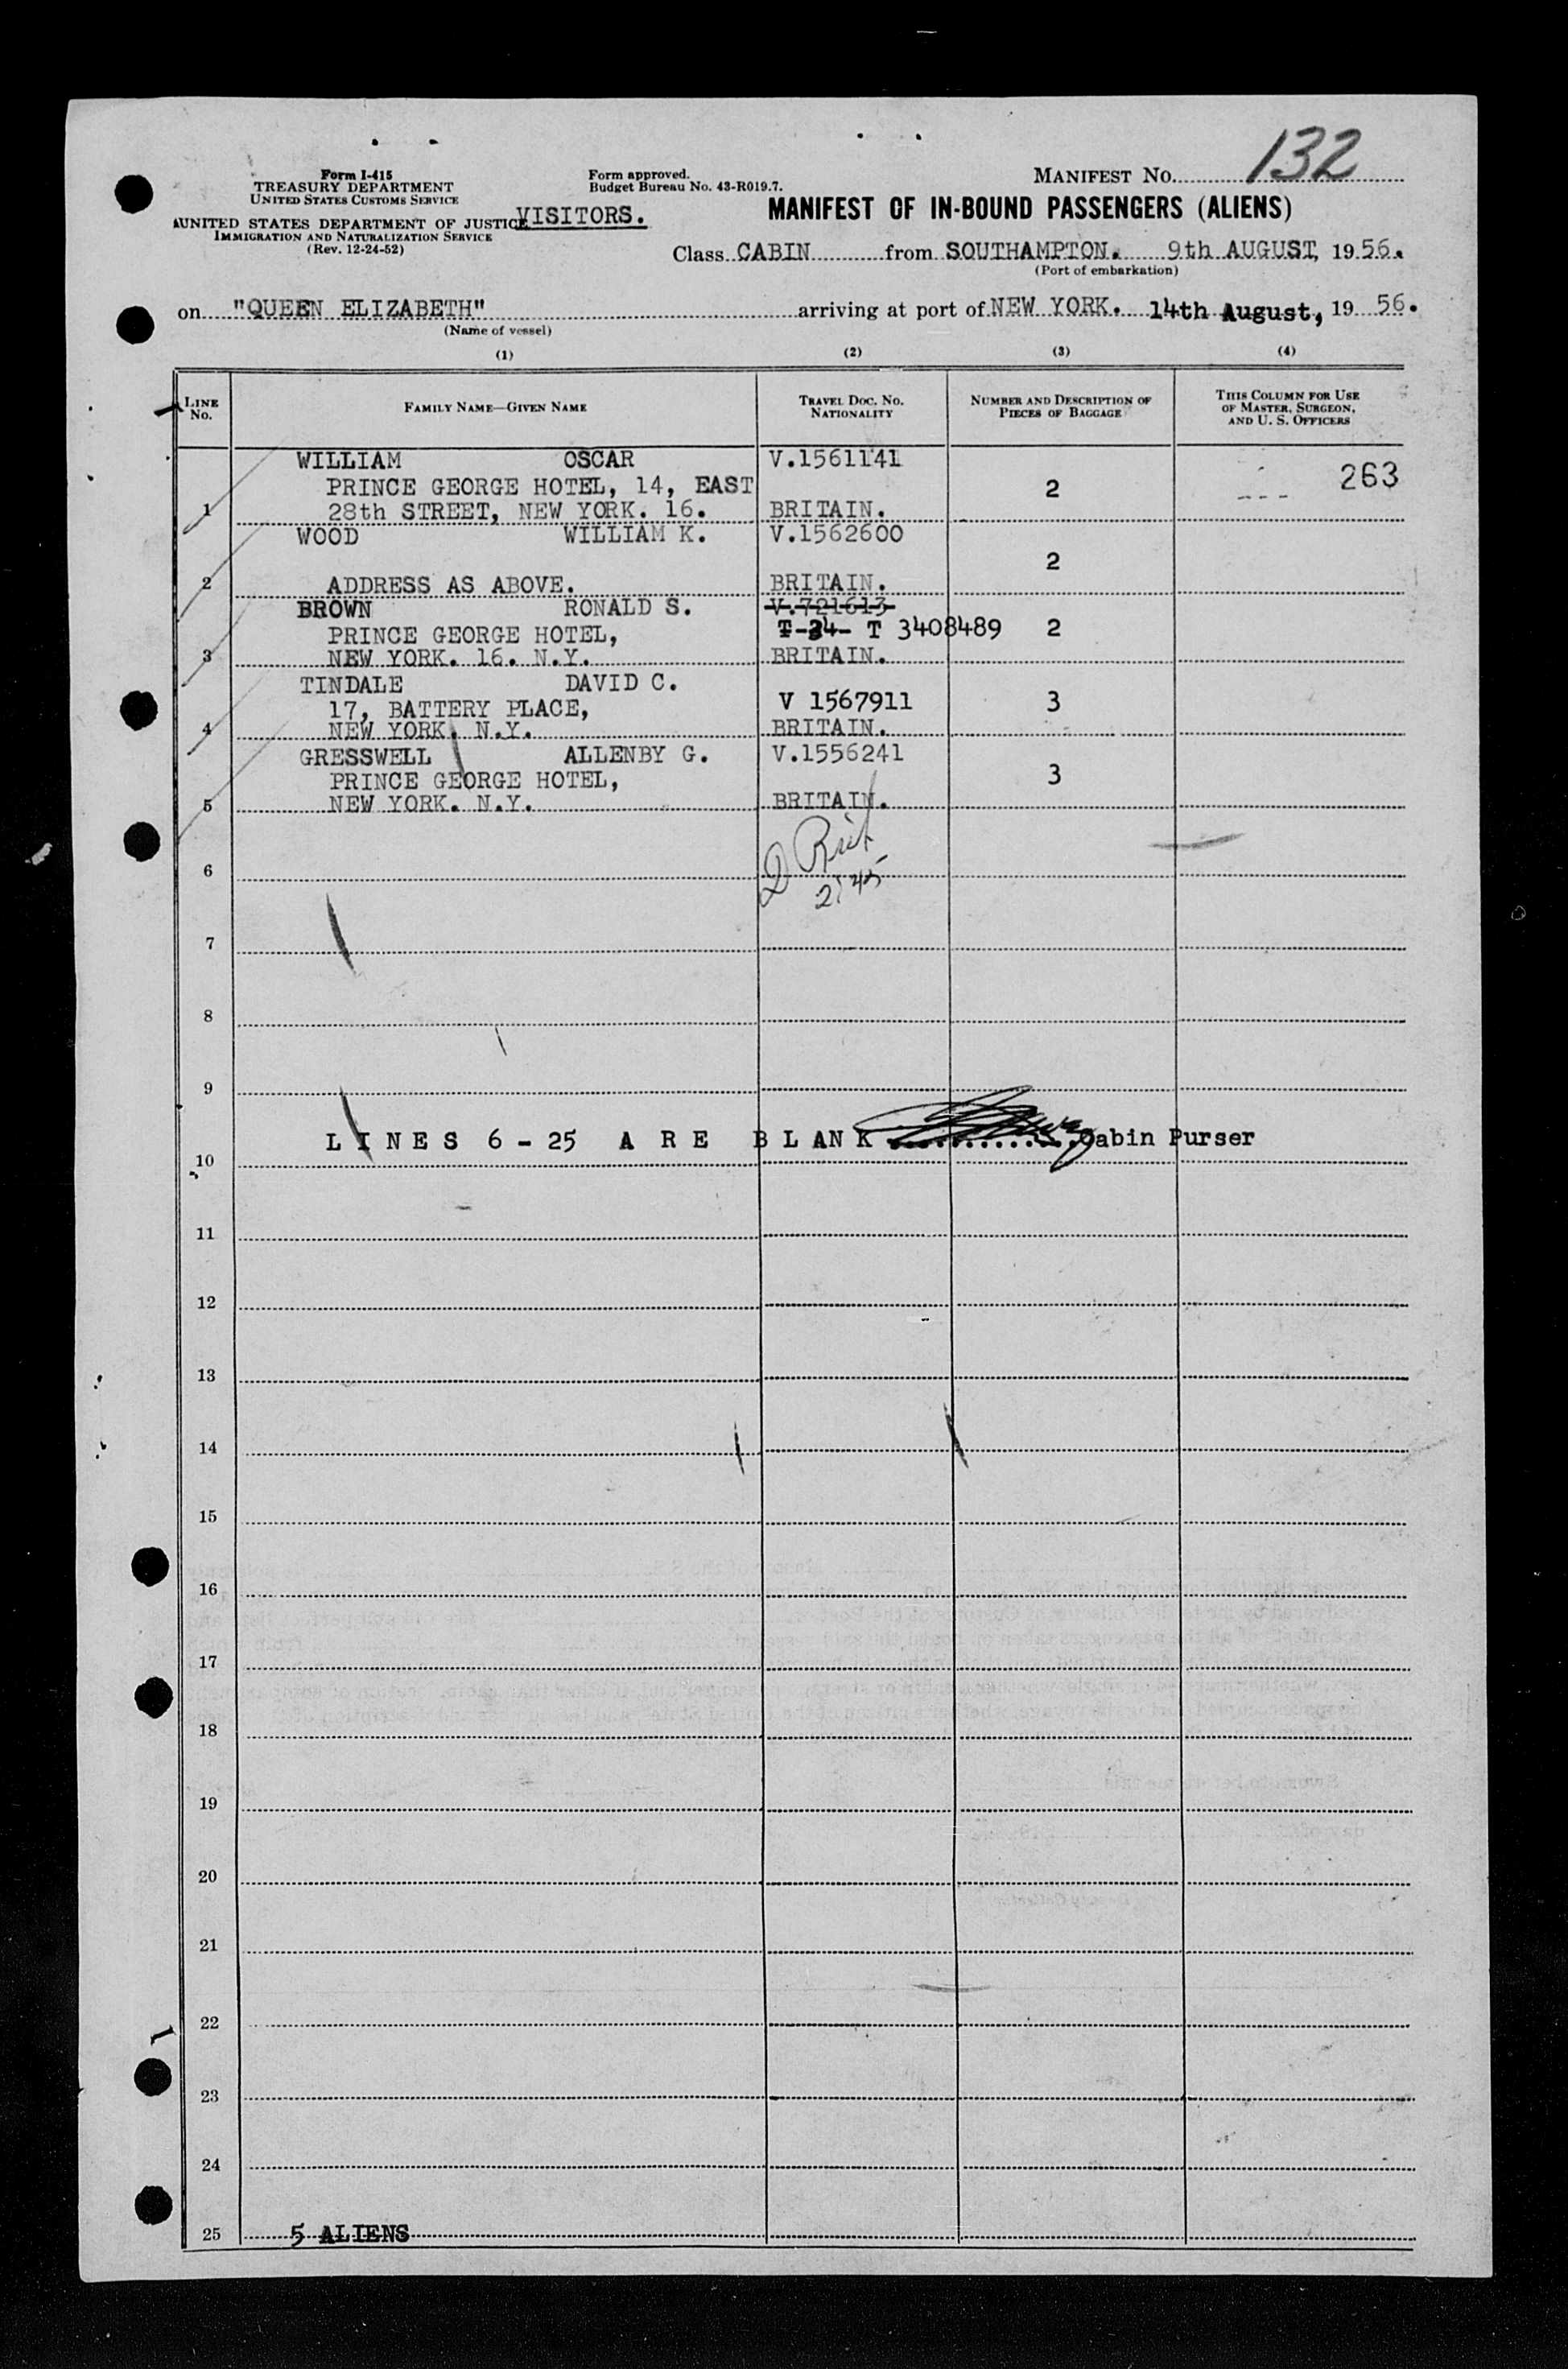 Form I-415
TREASURY DEPARTMENT
UNITED STATES CUSTOMS SERVICE
UNITED STATES DEPARTMENT OF JUSTICE
IMMIGRATION AND NATURALIZATION SERVICE
(Rev. 12-24-52)
Form approved.
Budget Bureau No. 43-R019.7.
VISITORS.
MANIFEST NO. 132
MANIFEST OF IN-BOUND PASSENGERS (ALIENS)
Class CABIN from SOUTHAMPTON. 9th AUGUST, 1956.
(Port of embarkation)
on "QUEEN ELIZABETH" arriving at port of NEW YORK. 14th August, 1956.
(Name of vessel)
(1) (2) (3) (4)
LINE NO.
FAMILY NAME—GIVEN NAME
TRAVEL DOC. NO.
NATIONALITY
NUMBER AND DESCRIPTION OF
PIECES OF BAGGAGE
THIS COLUMN FOR USE
OF MASTER, SURGEON,
AND U. S. OFFICERS
WILLIAM OSCAR V.1561141
PRINCE GEORGE HOTEL, 14, EAST 2 263
1 28th STREET, NEW YORK. 16. BRITAIN.
WOOD WILLIAM K. V.1562600
2
2 ADDRESS AS ABOVE. BRITAIN.
BROWN RONALD S. V.721613
PRINCE GEORGE HOTEL, T-34- T 3408489 2
3 NEW YORK. 16. N.Y. BRITAIN.
TINDALE DAVID C.
17, BATTERY PLACE, V 1567911 3
4 NEW YORK. N.Y. BRITAIN.
GRESSWELL ALLENBY G. V.1556241
PRINCE GEORGE HOTEL, 3
5 NEW YORK. N.Y. BRITAIN.
6
7
8
9
LINES 6 - 25 ARE BLANK ............Cabin Purser
10
11
12
13
14
15
16
17
18
19
20
21
22
23
24
25 5 ALIENS